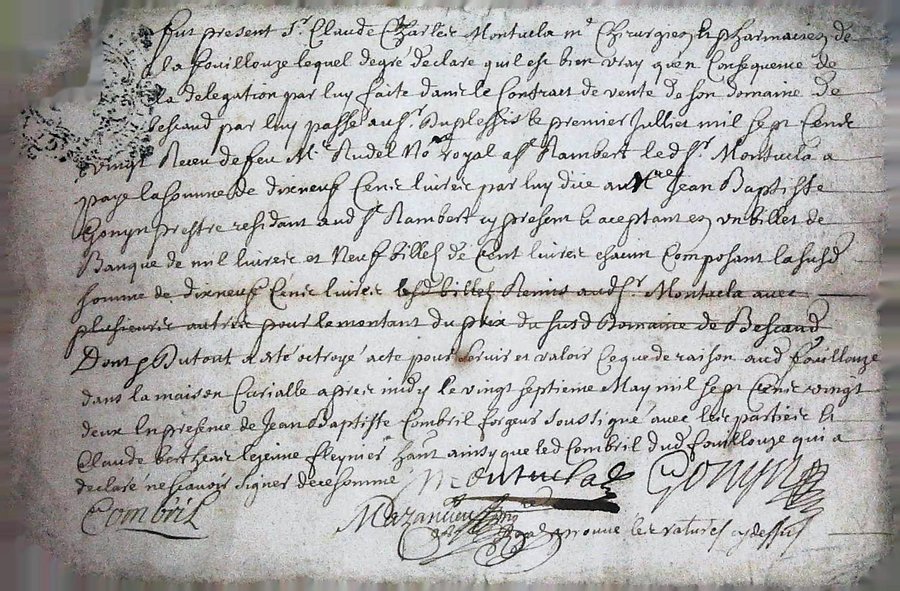 fut present Sr. Claude Charles Montucla me Chirurgien et pharmacien de
la fouillouze lequel degre declare quil est bien vray qu'en Consequence de
la delegation par luy faite dans le Contract de vente de son domaine de
bescaud par luy passé au Sr. Duplessis le premier Juillet mil sept Cents
vingt Receu de feu Me Rudel Nore royal a St Rambert led Sr. Montucla a
payé la somme de dixneuf Cents livres par luy due a Mre Jean Baptiste
Gonyn prestre residant aud St Rambert cy present et aceptant en un billet de
Banque de mil livres et Neuf billets de Cent livres chacun Composant la susd
somme de dixneuf Cents livres lesd billets Remis aud Sr. Montucla avec
plusieurs autres pour le montant du prix du susd Domaine de Bescaud
Dont & Dutout a esté octroyé acte pour servir et valoir Ce que de raison aud fouillouze
dans la maison Curialle apres midy le vingt septieme May mil sept Cents vingt
deux En presence de Jean Baptiste Combril forgeur soussigné avec les parties et
Claude le jeune habitant ainsy que led Combril dud fouillouze qui a
declaré ne scavoir signer de ce sommé Montucla Gonyn
Combril
Mazancieu
aprouve les ratures cy dessus